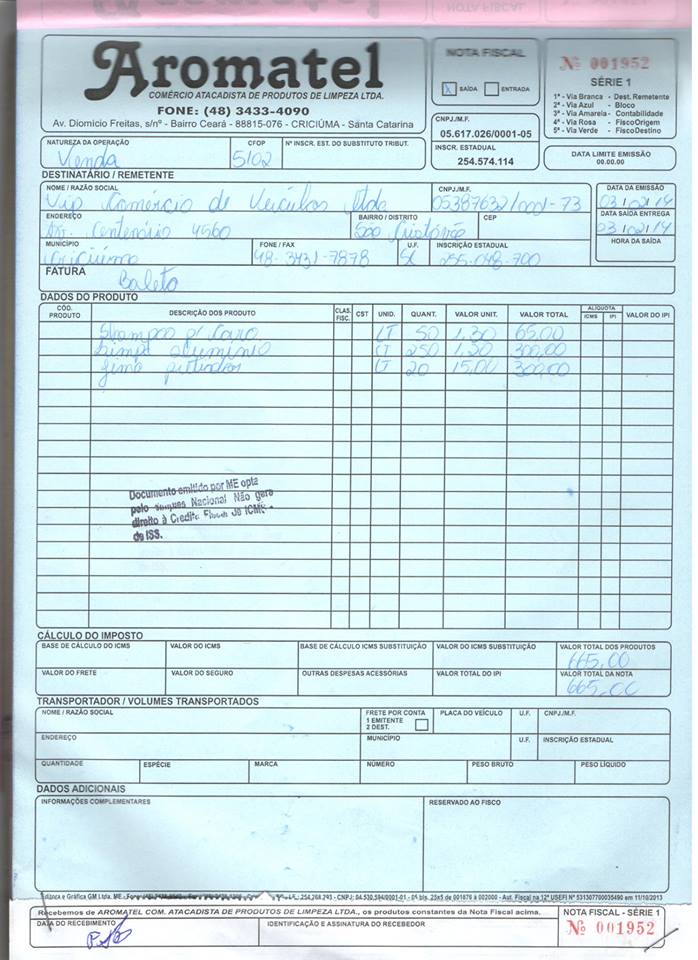 Aromatel
COMÉRCIO ATACADISTA DE PRODUTOS DE LIMPEZA LTDA.
FONE: (48) 3433-4090
Av. Diomicio Freitas, s/nº - Bairro Ceará - 88815-076 - CRICIÚMA - Santa Catarina
NOTA FISCAL
X SAÍDA ENTRADA
CNPJ/M.F.
05.617.026/0001-05
INSCR. ESTADUAL
254.574.114
Nº 001952
SÉRIE 1
1ª - Via Branca - Dest. Remetente
2ª - Via Azul - Bloco
3ª - Via Amarela - Contabilidade
4ª - Via Rosa - FiscoOrigem
5ª - Via Verde - FiscoDestino
DATA LIMITE EMISSÃO
00.00.00
NATUREZA DA OPERAÇÃO CFOP Nº INSCR. EST. DO SUBSTITUTO TRIBUT.
Venda 5102
DESTINATÁRIO / REMETENTE
NOME / RAZÃO SOCIAL CNPJ/M.F. DATA DA EMISSÃO
Vip Comércio de Veículos Ltda 05387632/0001-73 03/02/14
ENDEREÇO BAIRRO / DISTRITO CEP DATA SAÍDA ENTREGA
Av. Centenário 4560 São Cristóvão 03/02/14
MUNICÍPIO FONE / FAX U.F. INSCRIÇÃO ESTADUAL HORA DA SAÍDA
Criciúma 48-3431-7878 SC 255.048.700
FATURA
Boleto
DADOS DO PRODUTO
CÓD. PRODUTO DESCRIÇÃO DOS PRODUTOS CLAS. FISC. CST UNID. QUANT. VALOR UNIT. VALOR TOTAL ALÍQUOTA ICMS IPI VALOR DO IPI
Shampoo p/ Carro LT 50 1,30 65,00
Limpa aluminio LT 250 1,20 300,00
LT 20 15,00 300,00
Documento emitido por ME opta
pelo Simples Nacional Não gera
direito à Credito Fiscal de ICMS -
de ISS.
CÁLCULO DO IMPOSTO
BASE DE CÁLCULO DO ICMS VALOR DO ICMS BASE DE CÁLCULO ICMS SUBSTITUIÇÃO VALOR DO ICMS SUBSTITUIÇÃO VALOR TOTAL DOS PRODUTOS
665,00
VALOR DO FRETE VALOR DO SEGURO OUTRAS DESPESAS ACESSÓRIAS VALOR TOTAL DO IPI VALOR TOTAL DA NOTA
665,00
TRANSPORTADOR / VOLUMES TRANSPORTADOS
NOME / RAZÃO SOCIAL FRETE POR CONTA 1 EMITENTE 2 DEST. PLACA DO VEÍCULO U.F. CNPJ/M.F.
ENDEREÇO MUNICÍPIO U.F. INSCRIÇÃO ESTADUAL
QUANTIDADE ESPÉCIE MARCA NÚMERO PESO BRUTO PESO LÍQUIDO
DADOS ADICIONAIS
INFORMAÇÕES COMPLEMENTARES RESERVADO AO FISCO
Gráfica GM Ltda. ME - 254.268.293 - CNPJ: 04.530.594/0001-01 - 05 bls. 25x5 de 001876 a 002000 - Aut. Fiscal na 12ª USEFI Nº 531307700035490 em 11/10/2013
Recebemos de AROMATEL COM. ATACADISTA DE PRODUTOS DE LIMPEZA LTDA., os produtos constantes da Nota Fiscal acima.
DATA DO RECEBIMENTO IDENTIFICAÇÃO E ASSINATURA DO RECEBEDOR
NOTA FISCAL - SÉRIE 1
Nº 001952